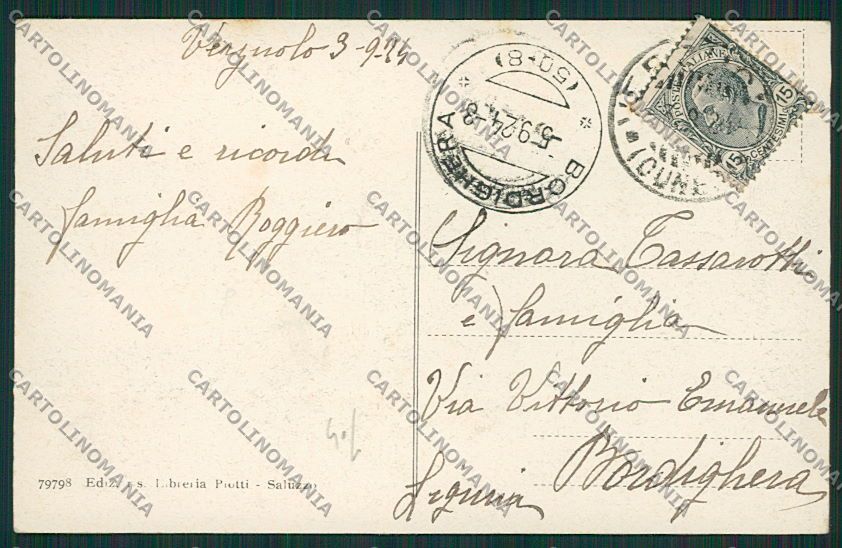 Verzuolo 3-9-24
Saluti e ricordi
famiglia Roggiero
79798 Ediz. Libreria Piotti - Saluzzo
(50-8)
5.9.24
* BORDIGHERA *
POSTE ITALIANE
CENTESIMI 15
15
Signora Tassarotti
e famiglia
Via Vittorio Emanuele
Bordighera
Liguria
CARTOLINOMANIA